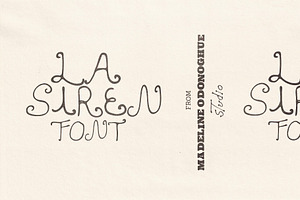 LA
SIREN
FONT
FROM
MADELINE ODONOGHUE
Studio
L
SI
FO